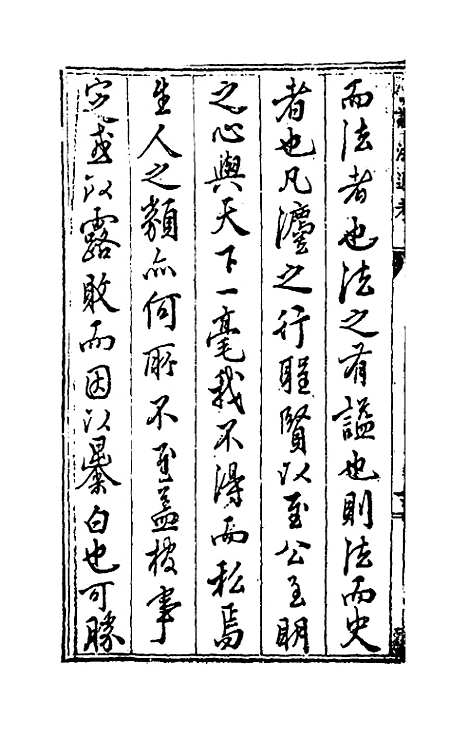 而法者也法之有謚也則法而史
者也凡灋之行聖賢以至公至明
之心與天下一毫我不得而私焉
生人之類亦何所不至蓋按事
定或以露敗而因以暴白也可勝